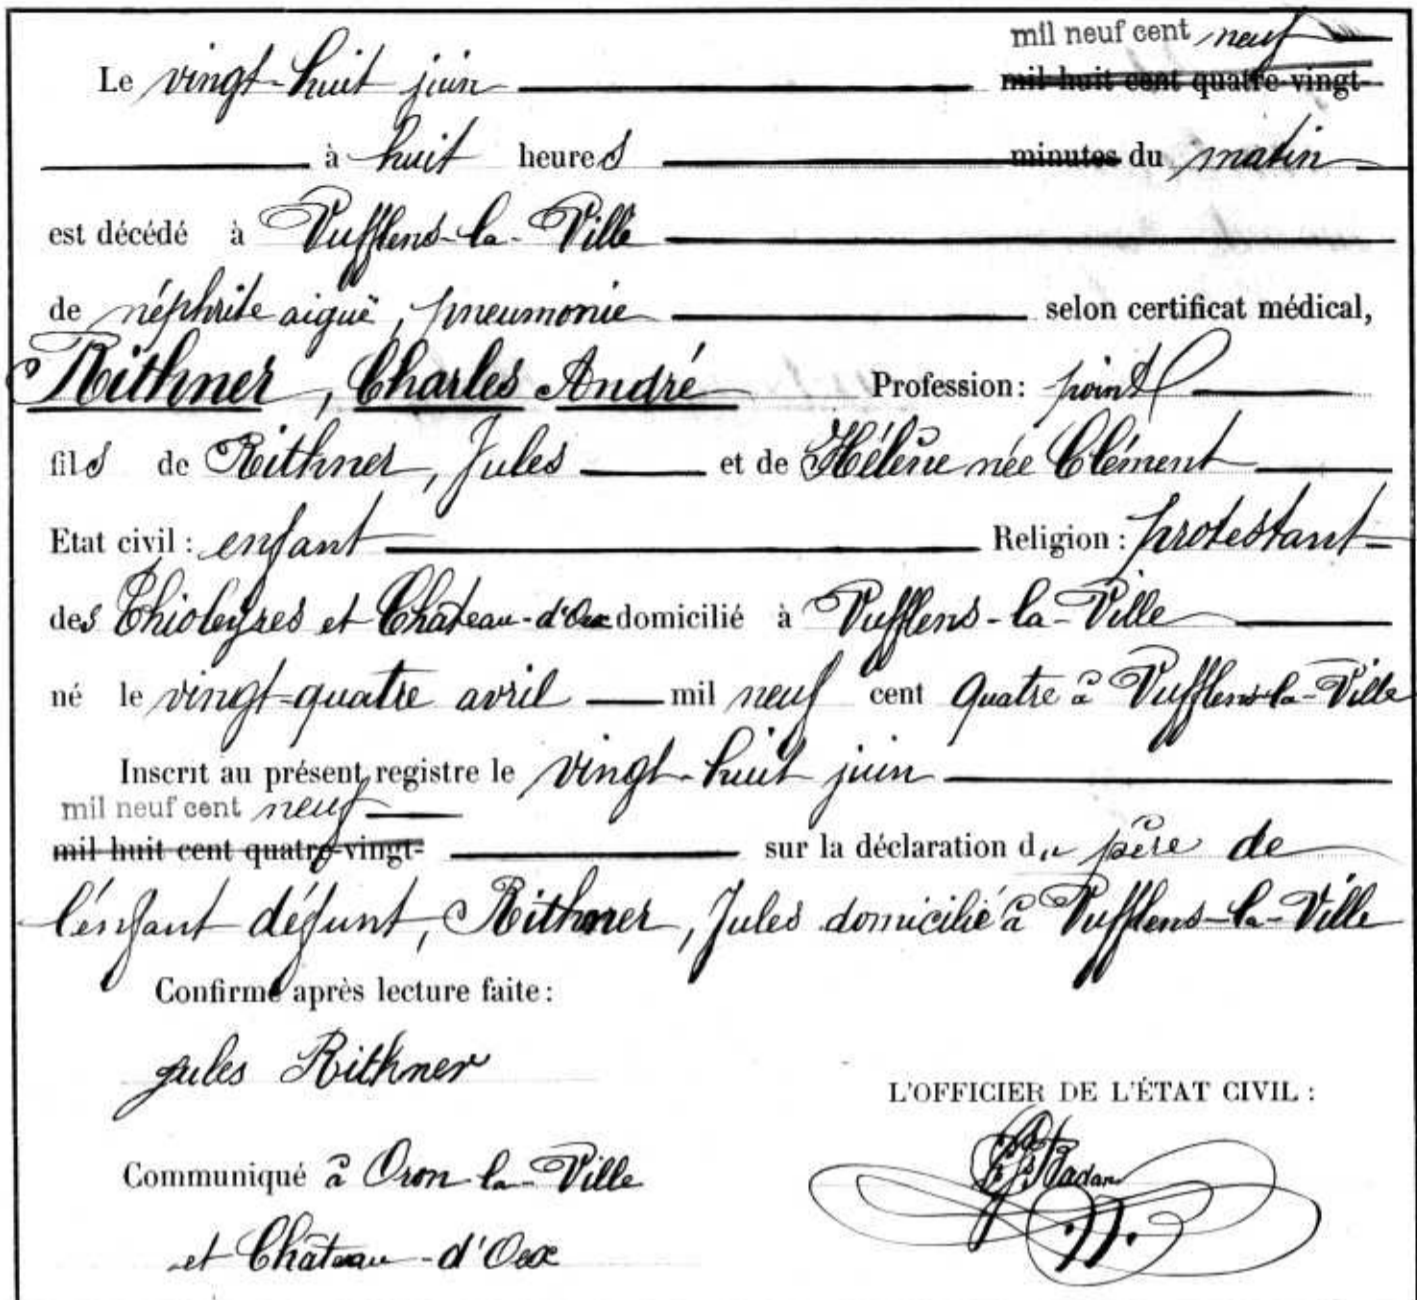 mil neuf cent neuf
Le vingt-huit juin mil huit cent quatre-vingt-
à huit heures minutes du matin
est décédé à Vufflens-la-Ville
de néphrite aiguë, pneumonie selon certificat médical,
Rithner, Charles André Profession: point
fils de Rithner, Jules et de Hélène née Clément
Etat civil: enfant Religion: protestant
des Thioleyres et Château-d'Oex domicilié à Vufflens-la-Ville
né le vingt-quatre avril mil neuf cent quatre à Vufflens-la-Ville
Inscrit au présent registre le vingt-huit juin
mil neuf cent neuf
mil huit cent quatre-vingt- sur la déclaration du père de
l'enfant défunt, Rithner, Jules domicilié à Vufflens-la-Ville
Confirmé après lecture faite:
Jules Rithner
L'OFFICIER DE L'ÉTAT CIVIL:
Communiqué à Oron-la-Ville
et Château-d'Oex